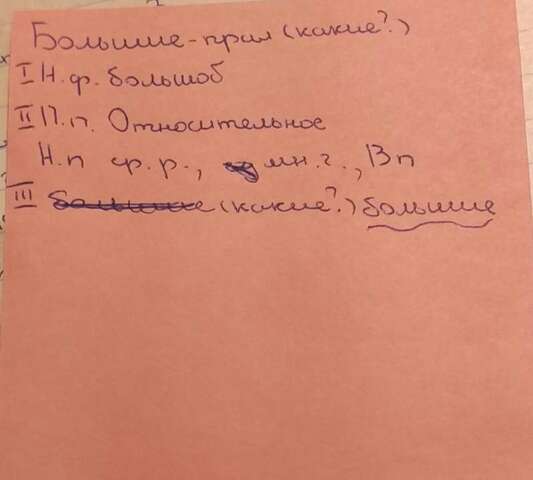 Большие-прил (какие?)
I Н.ф. большоб
II П.п. Относительное
Н.п ср.р., мн.ч., Вп
III большие (какие?) большие